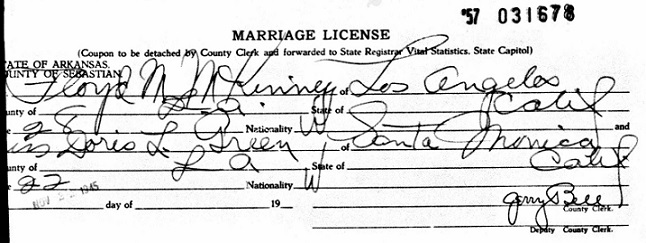 '57 031678
MARRIAGE LICENSE
(Coupon to be detached by County Clerk and forwarded to State Registrar Vital Statistics, State Capitol)
ATE OF ARKANSAS.
OUNTY OF SEBASTIAN
Floyd M. McKinney of Los Angeles
unty of L a State of Calif
28 Nationality W and
iss Doris L. Green of Santa Monica
unty of L a State of Calif
e 22 Nationality W
NOV 1945 day of 19
Jerry Bell
County Clerk.
Deputy County Clerk.